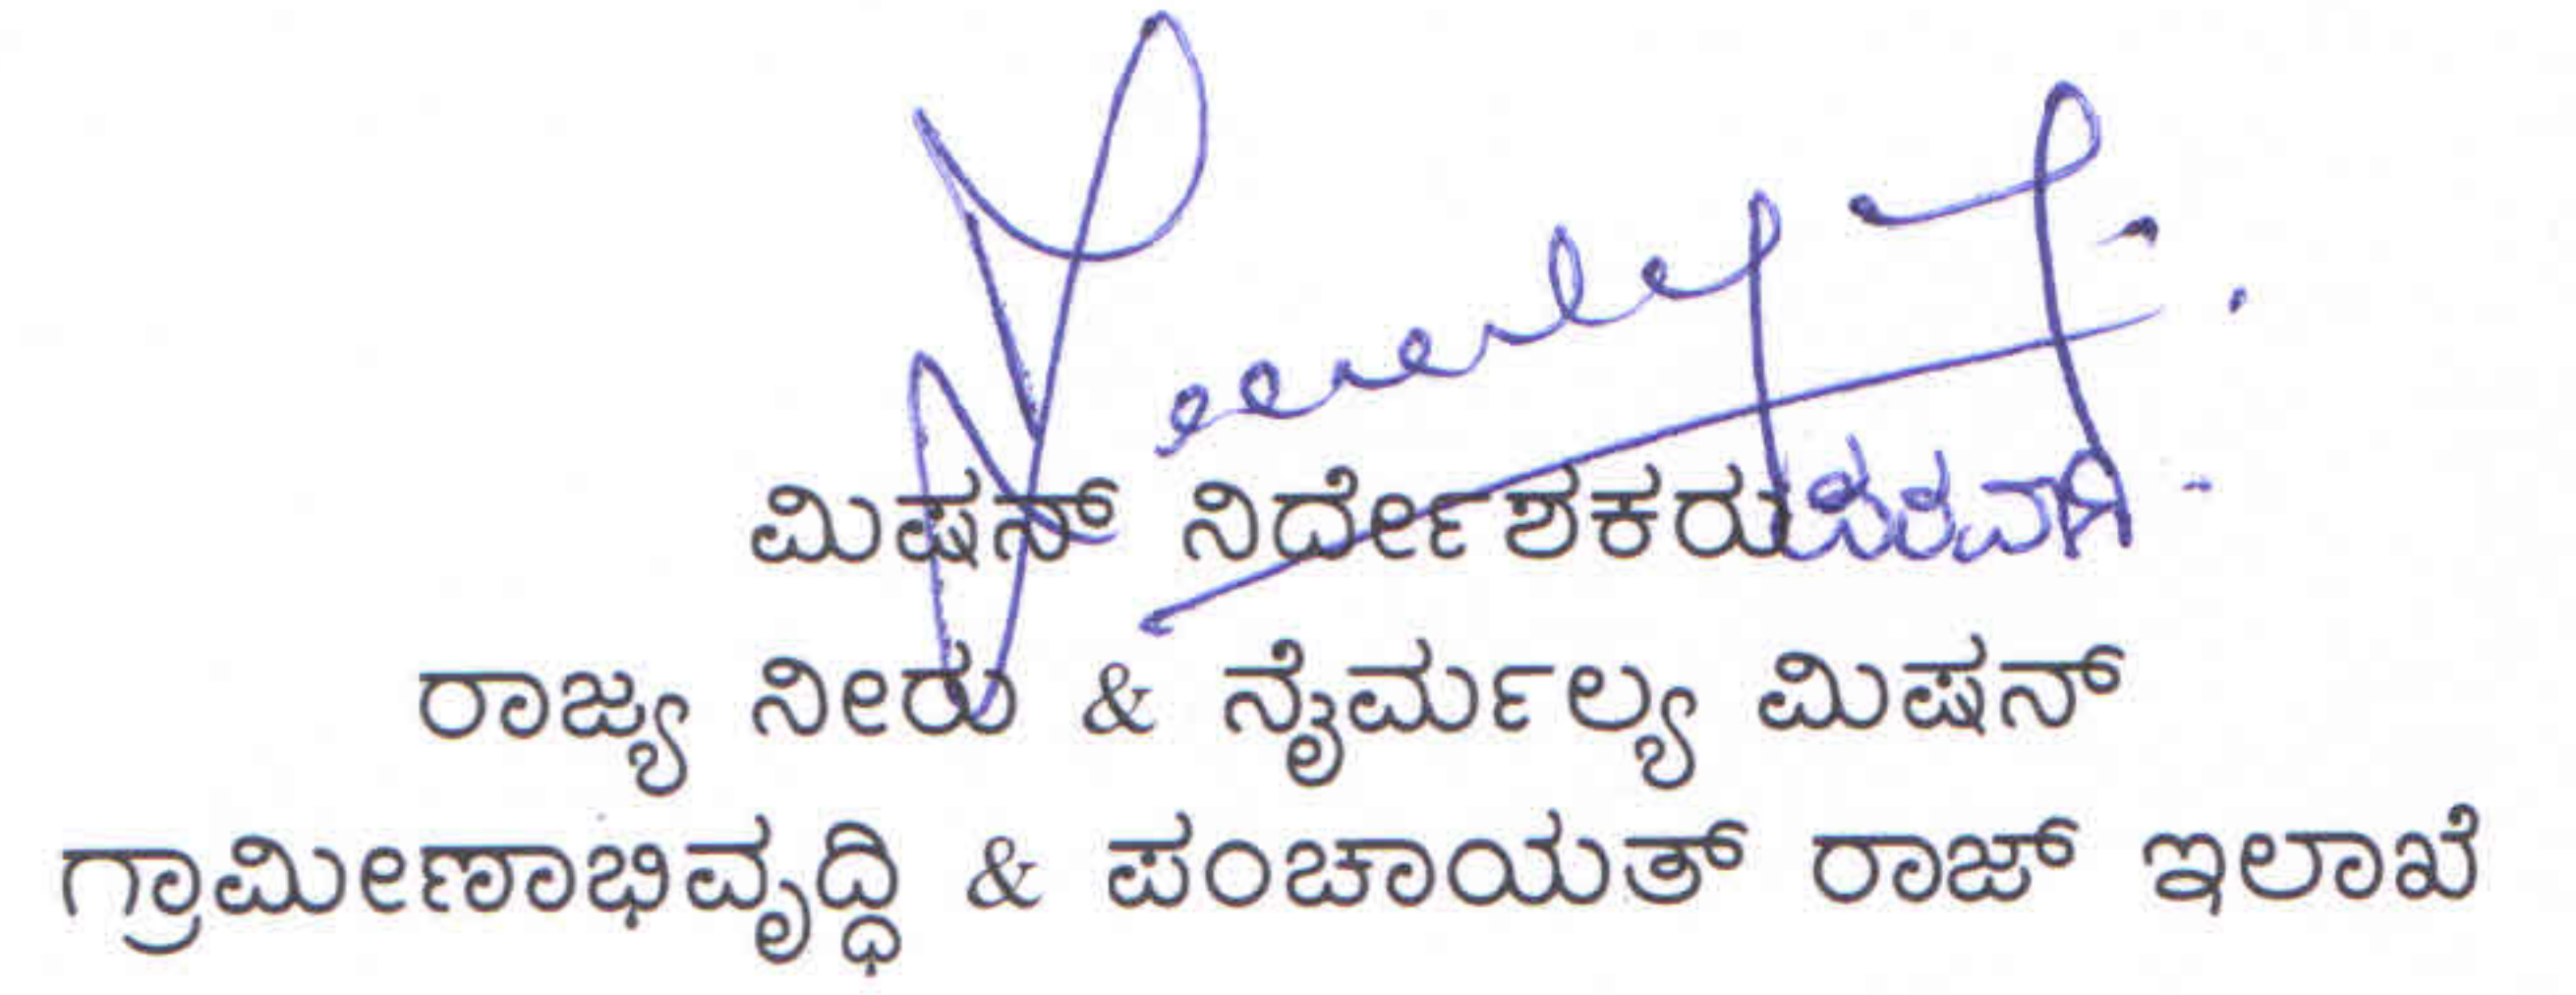 ಮಿಷನ್ ನಿರ್ದೇಶಕರು ಪರವಾಗಿ
ರಾಜ್ಯ ನೀರು & ನೈರ್ಮಲ್ಯ ಮಿಷನ್
ಗ್ರಾಮೀಣಾಭಿವೃದ್ಧಿ & ಪಂಚಾಯತ್ ರಾಜ್ ಇಲಾಖೆ